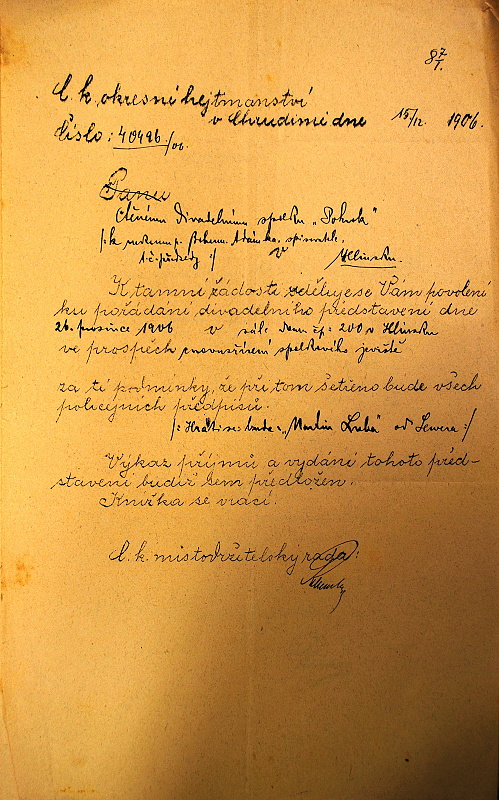 87/I.
C. k. okresní hejtmanství
v Chrudimi dne 15/12 1906.
Číslo: 40496/06.
Panu
Ctěnému divadelnímu spolku „Pokrok"
/:k rukoum p. Adámka, spisovatele,
t. č. předsedy :/ v Hlinsku.
K tamní žádosti sděluje se Vám povolení
ku pořádání divadelního představení dne
26. prosince 1906 v sále domu čp: 200 v Hlinsku
ve prospěch znovuzřízení spolkového jeviště
za té podmínky, že při tom šetřeno bude všech
policejních předpisů.
/: Hráti se bude: „Martin Luba" od Sewera :/
Výkaz příjmů a vydání tohoto před-
stavení budiž sem předložen.
Knížka se vrací.
C. k. místodržitelský rada: